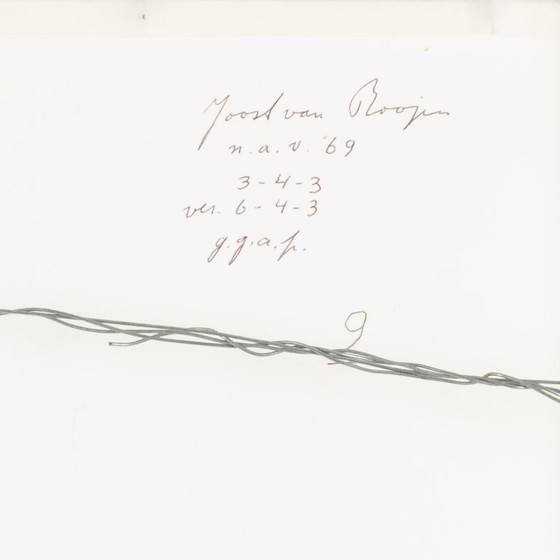 Joost van Roojen
n.a.v. '69
3-4-3
ver. 6-4-3
g.g.a.p.
9